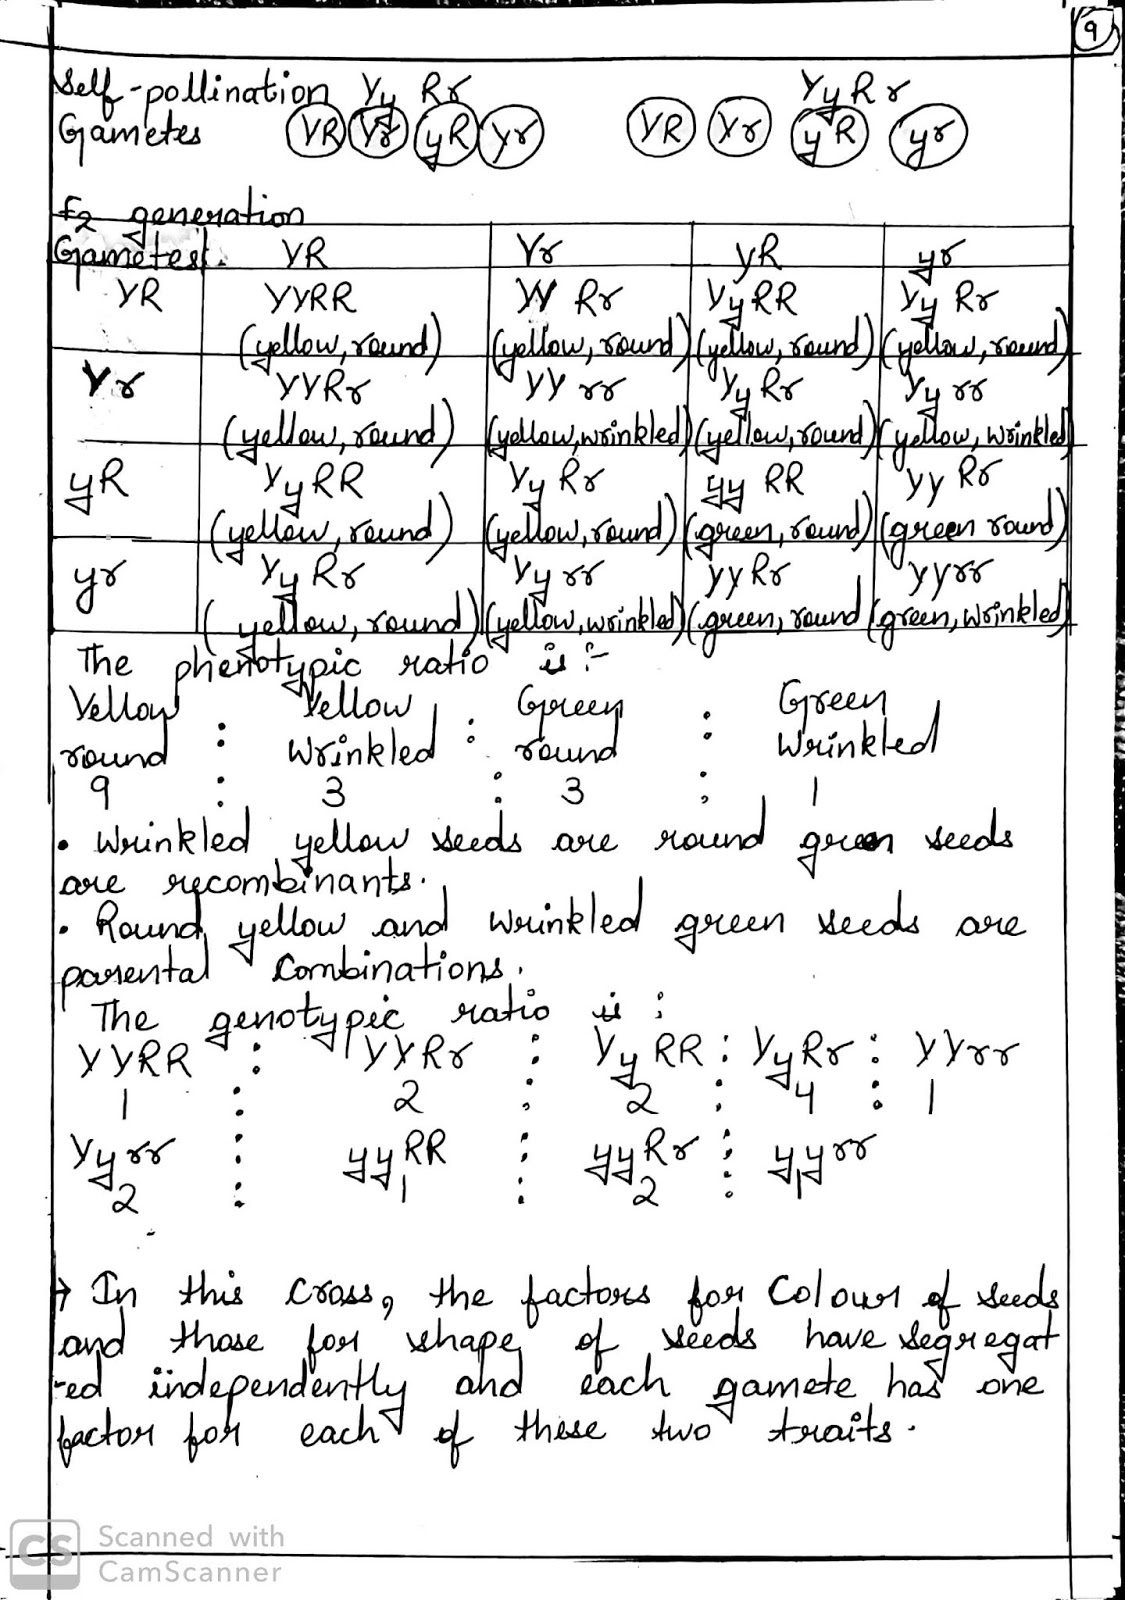 9
Self-pollination Yy Rr YyRr
Gametes YR Yr yR yr YR Yr yR yr
F2 generation
Gametes YR Yr yR yr
YR YYRR YY Rr YyRR Yy Rr
(yellow, round) (yellow, round) (yellow, round) (yellow, round)
Yr YYRr YY rr Yy Rr Yy rr
(yellow, round) (yellow, wrinkled) (yellow, round) (yellow, wrinkled)
yR YyRR Yy Rr yy RR yy Rr
(yellow, round) (yellow, round) (green, round) (green round)
yr Yy Rr Yy rr yy Rr yyrr
(yellow, round) (yellow, wrinkled) (green, round (green, wrinkled)
The phenotypic ratio is :-
Yellow : Yellow : Green : Green
round wrinkled round wrinkled
9 : 3 : 3 : 1
• Wrinkled yellow seeds are round green seeds
are recombinants.
• Round, yellow and wrinkled green seeds are
parental combinations.
The genotypic ratio is :
YYRR : YYRr : Yy RR : YyRr : YYrr
1 : 2 : 2 : 4 : 1
Yyrr : yyRR : yyRr : yyrr
2 : 1 : 2 : 1
→ In this cross, the factors for Colour of seeds
and those for shape of seeds have segregat
-ed independently and each gamete has one
factor for each of these two traits.
CS Scanned with
CamScanner